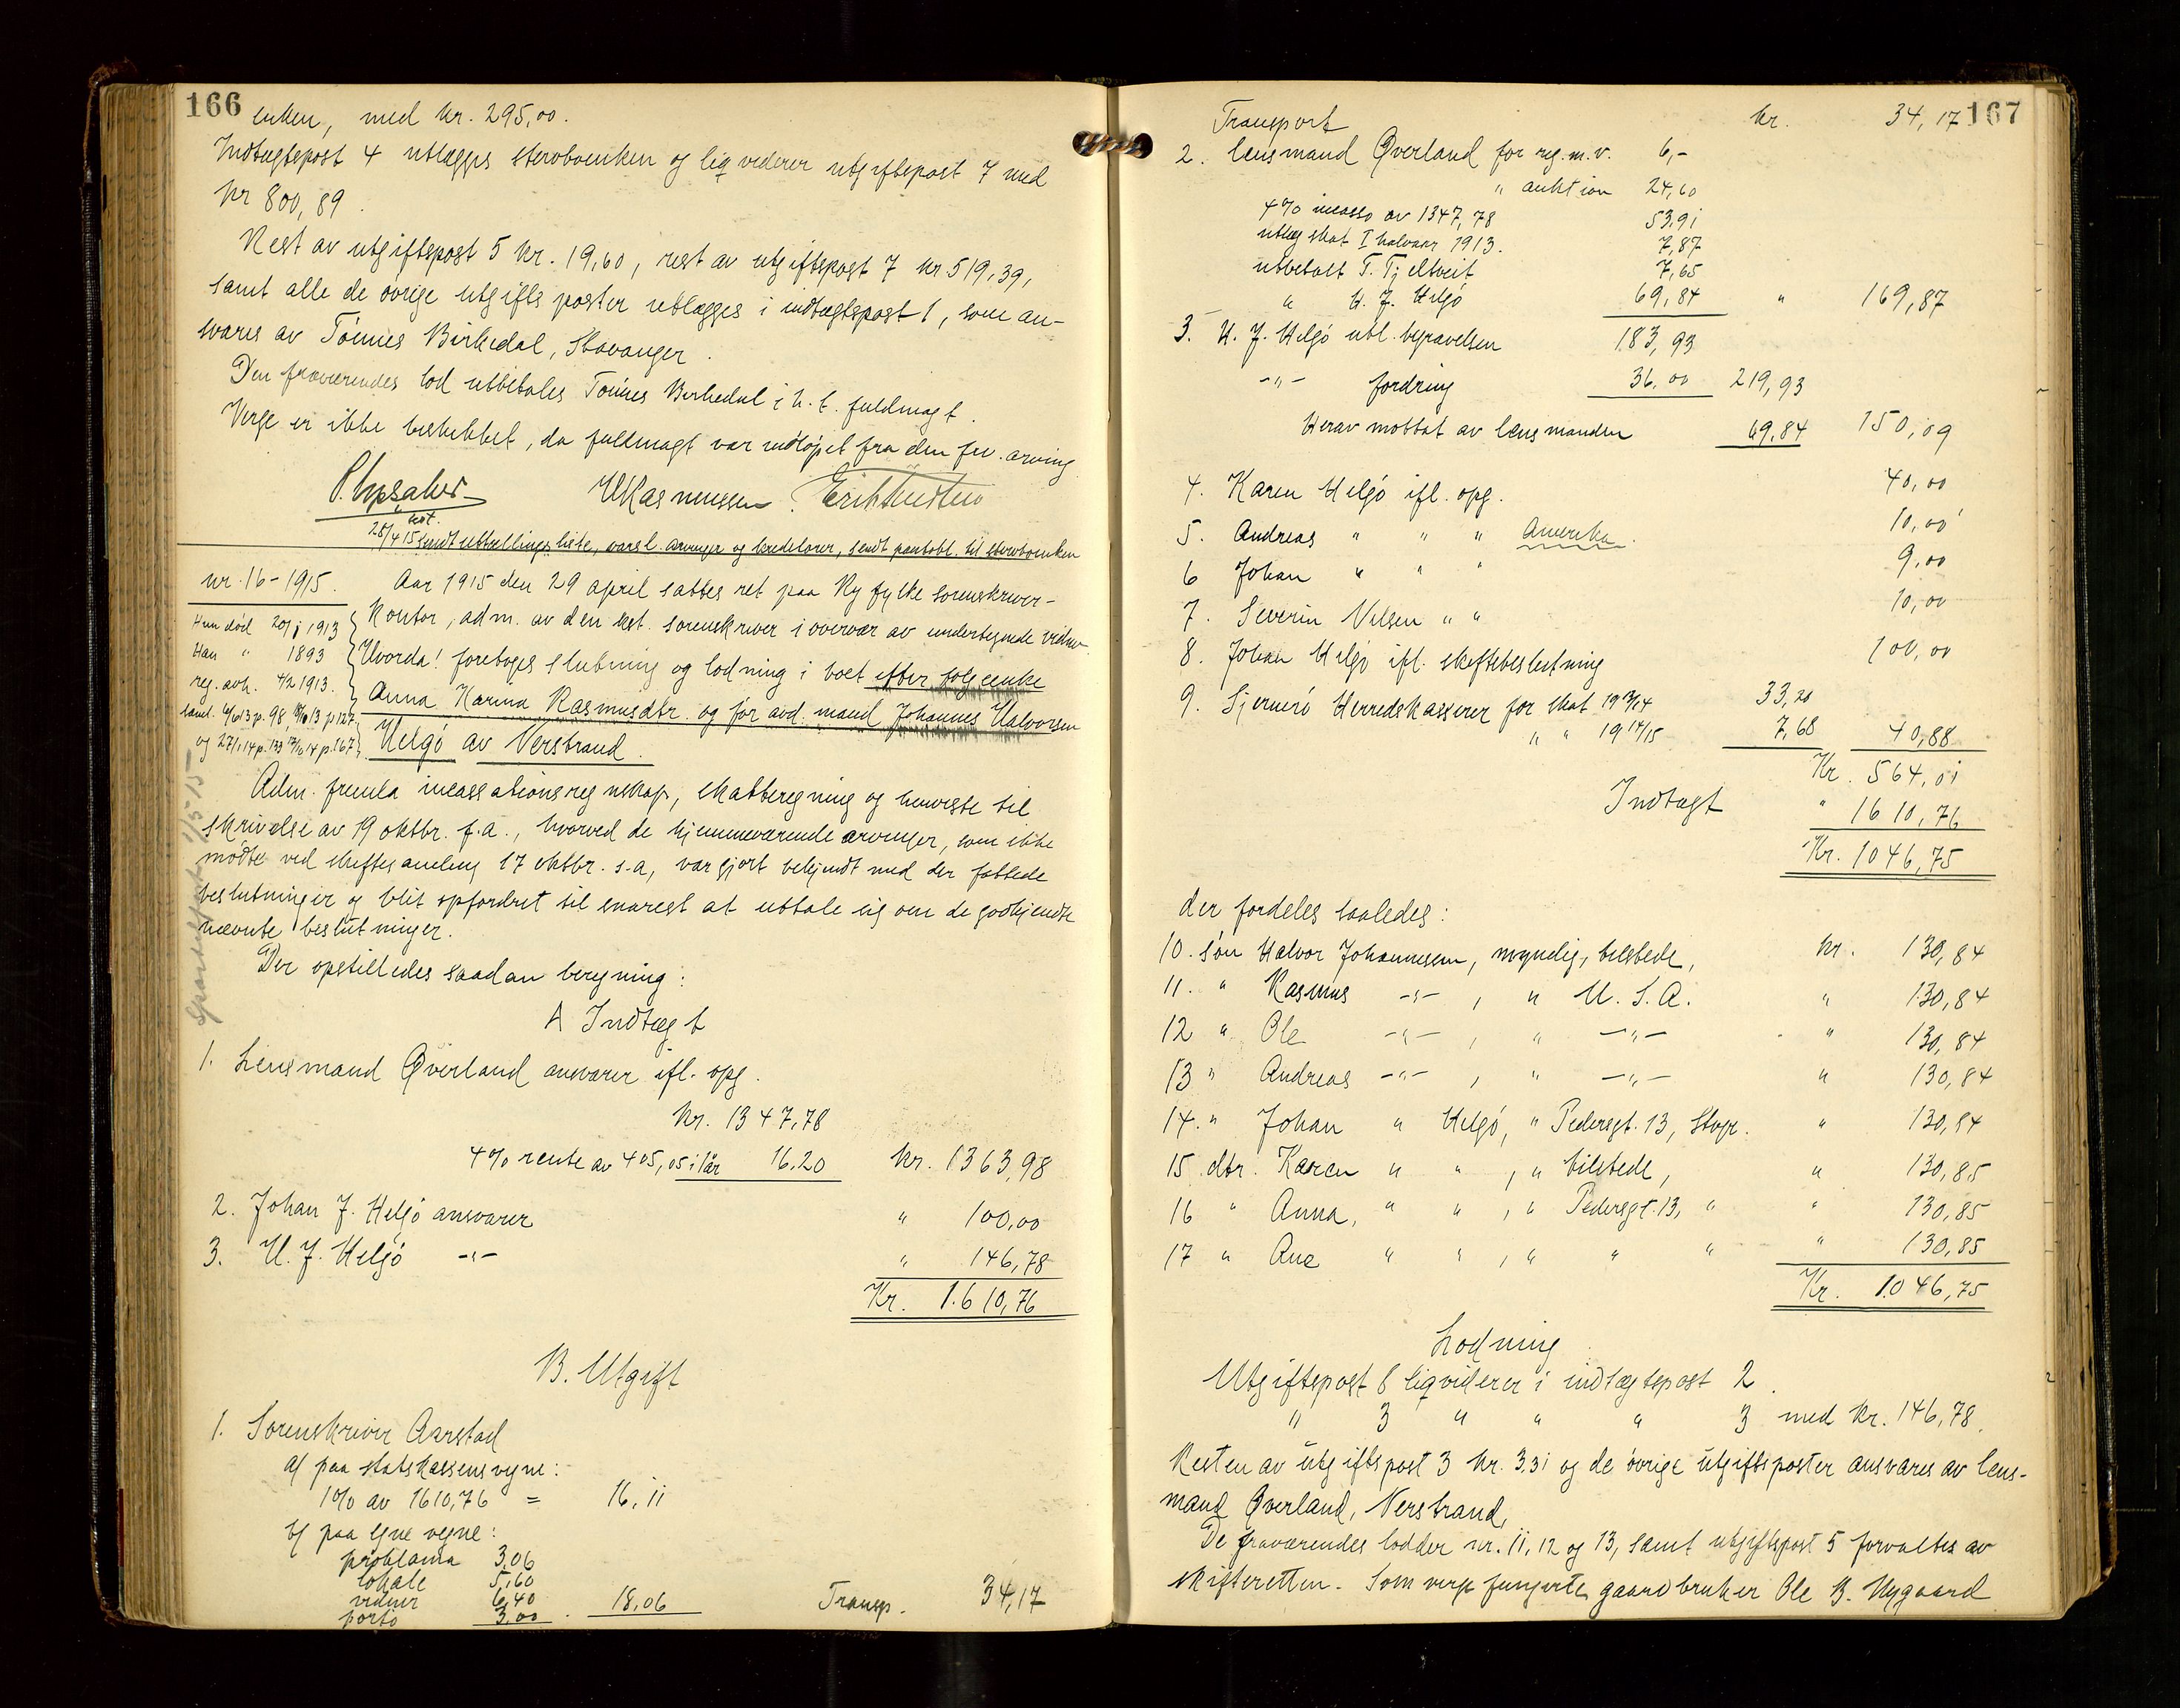 166
enken, med kr. 295,00.
Indtægtspost 4 utlægges stervboenken og liqviderer utgiftspost 7 med
kr 800,89.
Rest av utgiftspost 5 kr. 19,60, rest av utgiftspost 7 kr 519,39,
samt alle de øvrige utgiftsposter utlægges i indtægtspost 1, som an-
svares av Tønnes Birkedal, Stavanger.
Den fraværendes lod utbetales Tønnes Birkedal i h. t. fuldmagt.
Verge er ikke beskikket, da fuldmagt var indløpet fra den frv. arving
kst.
28/4 15 sendt utlodningsliste, varsl. arvinger og kreditorer, sendt pantobl. til stervboenken
nr. 16 - 1915.
Hun død 20/1 1913
Han " 1893
reg. avh. 4/2 1913.
saml. 6/6 13 p. 98, 13 p 127
og 27/1 14 p. 133 14 p. 167
Aar 1915 den 29 april sattes ret paa Ryfylke sorenskriver-
kontor, adm. av den kst. sorenskriver i overvær av undertegnede vidner.
Hvorda! foretoges slutning og lodning i boet efter følgeenke
Anna Karina Rasmusdtr. og før avd. mand Johannes Halvorsen
Helgø av Nerstrand.
Adm. fremla incassationsregnskap, skatteregning og henviste til
skrivelse av 19 oktbr. f.a., hvorved de hjemmeværende arvinger, som ikke
mødte ved skiftesamling 17 oktbr. s.a, var gjort bekjendt med der fattede
beslutninger og blit opfordret til snarest at uttale sig om de godkjendte
nævnte beslutninger.
Der opstilledes saadan beregning:
A Indtægt
1. Lensmand Øverland ansvarer ifl. opg.
kr. 1347,78
4% rente av 405,05 i 1 år 16,20 kr. 1363,98
2. Johan J. Helgø ansvarer " 100,00
3. H. J. Helgø -"- " 146,78
Kr. 1.610,76
B. Utgift
1. Sorenskriver Aarstad
a) paa statskassens vegne:
1% av 1610,76 = 16,11
b) paa egne vegne:
proklama 3,06
lokale 5,60
vidner 6,40
porto 3,00 . 18,06 Transp. 34,17
167
Transport kr. 34,17
2. lensmand Øverland for reg. m. v. 6,-
" auktion 24,60
4% incasso av 1347,78 53,91
utlæg skat I halvaar 1913. 7,87
utbetalt T. Tjeltveit 7,65
" H. J. Helgø 69,84 " 169,87
3. H. J. Helgø utl. begravelsen 183,93
-"- fordring 36,00 219,93
Herav mottat av lensmanden 69,84 150,09
4. Karen Helgø ifl. opg. 40,00
5. Andreas " " " Amerika. 10,00
6 Johan " " " 9,00
7. Severin Nilsen " " 10,00
8. Johan Helgø ifl. skiftebeslutning 100,00
9. Sjernerø Herredskasserer for skat 1913/14 33,20
" " 1914/15 7,68 40,88
Kr. 564,01
Indtægt " 1610,76
Kr. 1046,75
der fordeles saaledes:
10. søn Halvor Johannesen, myndig, tilstede, kr. 130,84
11. " Rasmus -"- , " U. S. A. " 130,84
12 " Ole -"- , " -"- " 130,84
13 " Andreas -"- , " -"- " 130,84
14. " Johan " Helgø, " Pedersgt. 13, Stvgr. " 130,84
15 dtr. Karen " " , " tilstede, " 130,85
16 " Anna, " " , " Pedersgt. 13, " " 130,85
17 " Ane " " , " " " " 130,85
Kr. 1.046,75
Lodning
Utgiftspost 8 liqviderer i indtægtspost 2.
" 3 " " " 3 med kr. 146,78.
Resten av utgiftspost 3 kr. 3,31 og de øvrige utgiftsposter ansvares av lens-
mand Øverland, Nerstrand,
De fraværendes lodder nr. 11, 12 og 13, samt utgiftspost 5 forvaltes av
skifteretten. Som verge fungerte gaardbruker Ole B. Nygaard